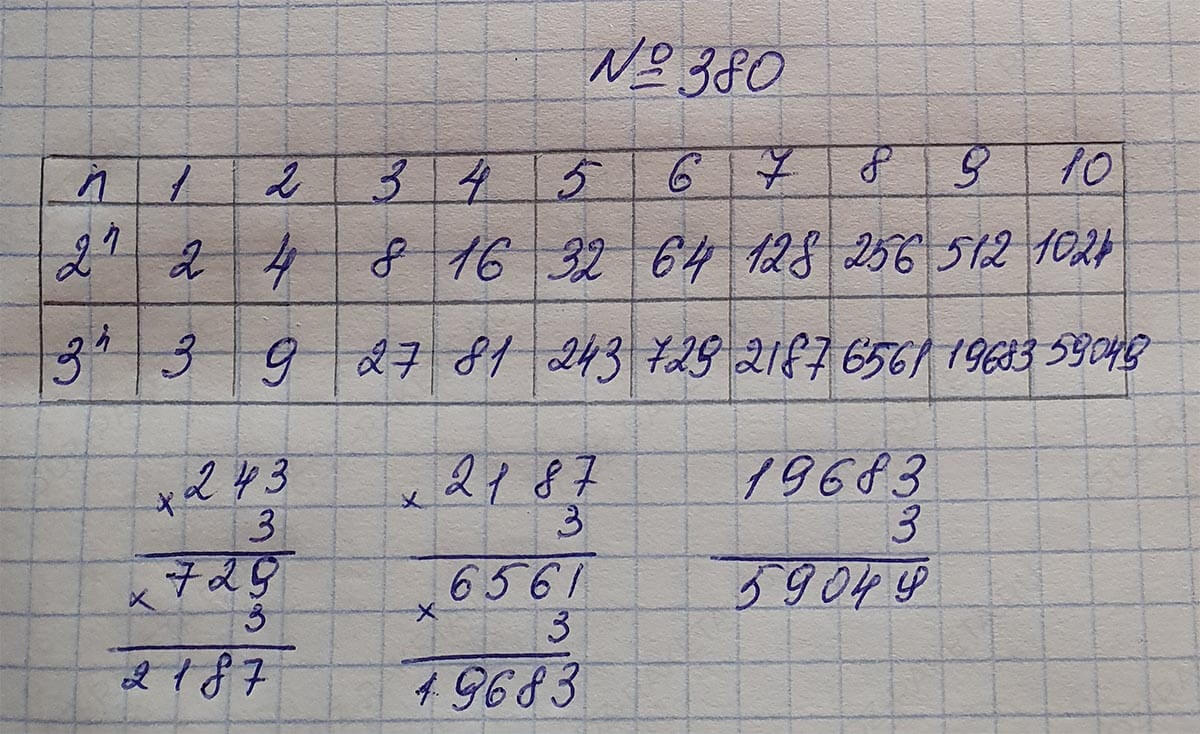 № 380
n 1 2 3 4 5 6 7 8 9 10
2ⁿ 2 4 8 16 32 64 128 256 512 1024
3ⁿ 3 9 27 81 243 729 2187 6561 19683 59049
× 243
3
729
× 3
2187
× 2187
3
6561
× 3
19683
19683
3
59049